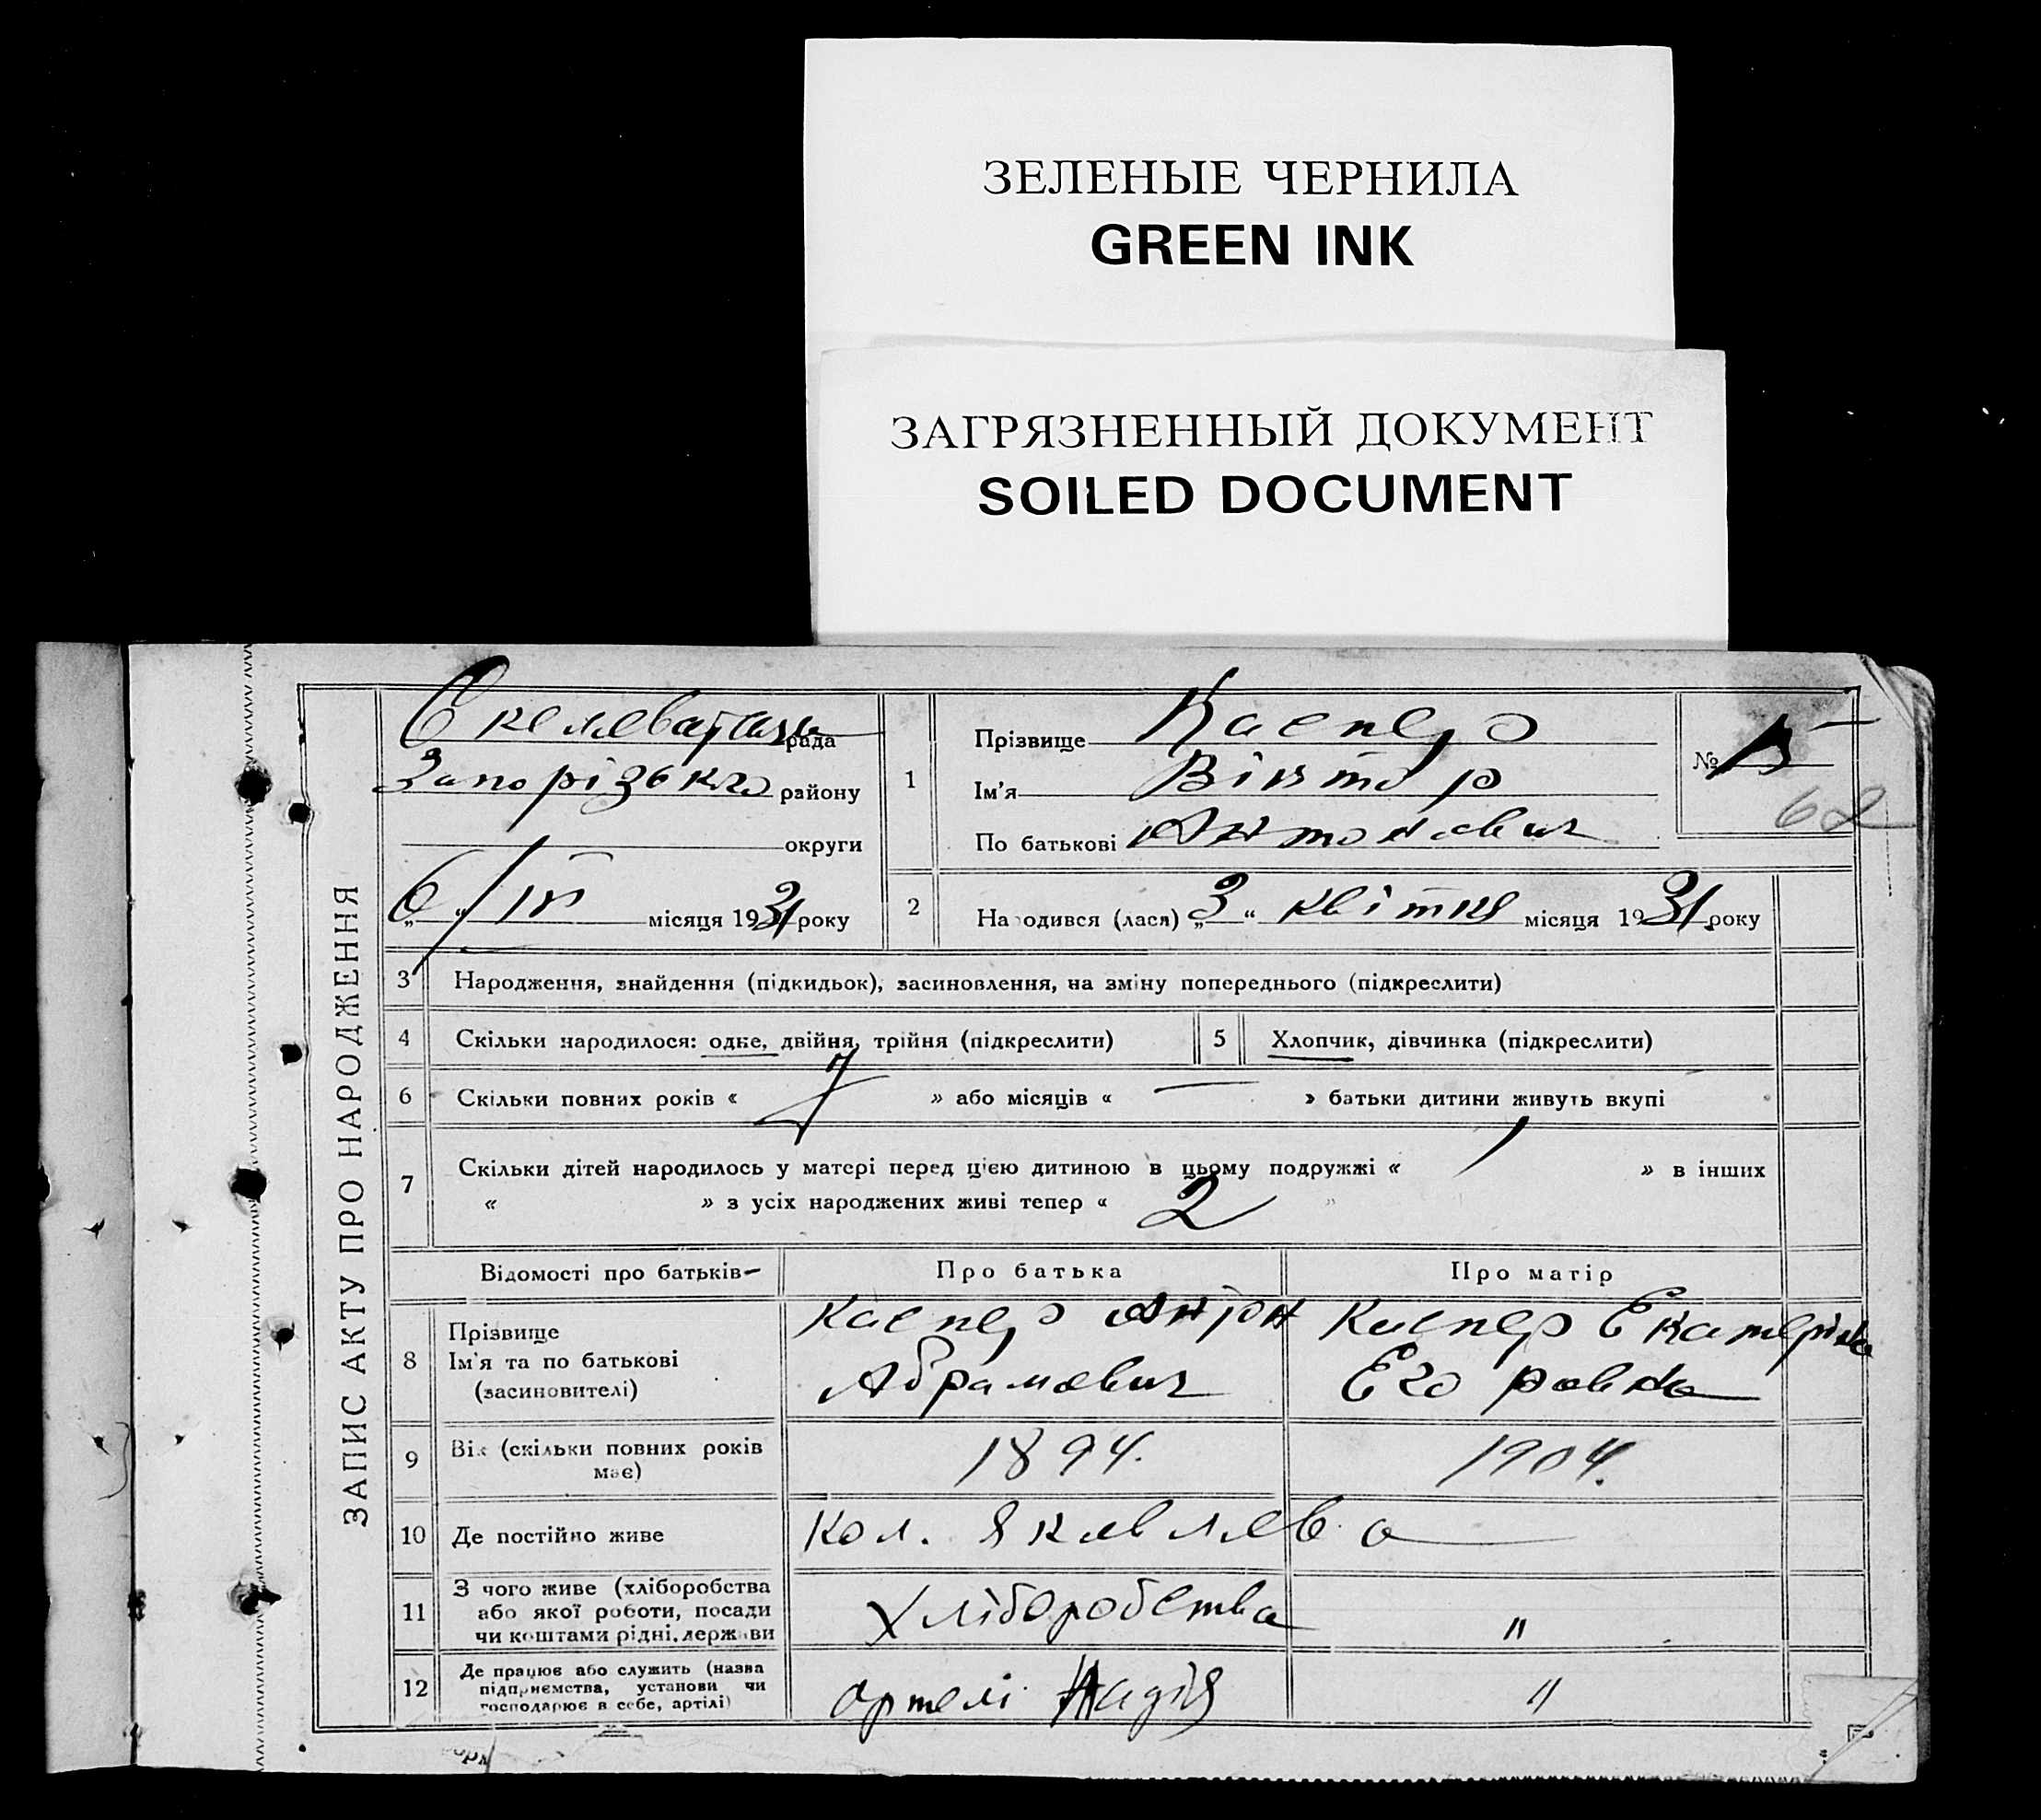 ЗЕЛЕНЫЕ ЧЕРНИЛА
GREEN INK
ЗАГРЯЗНЕННЫЙ ДОКУМЕНТ
SOILED DOCUMENT
ЗАПИС АКТУ ПРО НАРОДЖЕННЯ
рада
Запорізького району
округи
„6“ IV місяця 1931 року
1
Прізвище Каспер
Ім'я Віктор
По батькові Антонович
№ 15
62
2
Народився (лася) „3“ квітня місяця 1931 року
3 Народження, знайдення (підкидьок), засиновлення, на зміну попереднього (підкреслити)
4 Скільки народилося: одне, двійня, трійня (підкреслити)
5 Хлопчик, дівчинка (підкреслити)
6 Скільки повних років « 7 » або місяців « — » батьки дитини живуть вкупі
7 Скільки дітей народилось у матері перед цією дитиною в цьому подружжі « 1 » в інших
« » з усіх народжених живі тепер « 2 »
Відомості про батьків— Про батька Про матір
8 Прізвище
Ім'я та по батькові
(засиновителі)
Каспер Антон
Абрамович
Каспер Екатеріна
Егоровна
9 Вік (скільки повних років
має)
1894. 1904.
10 Де постійно живе Кол. Яковлево
11 З чого живе (хліборобства
або якої роботи, посади
чи коштами рідні, держави
Хліборобства "
12 Де працює або служить (назва
підприємства, установи чи
господарює в себе, артілі)
артелі Надія "